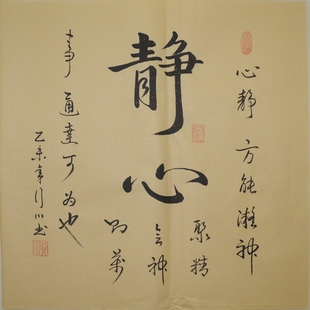 静心
心静方能凝神
聚精
会神
则萬
事通達可为也
乙未年行川书